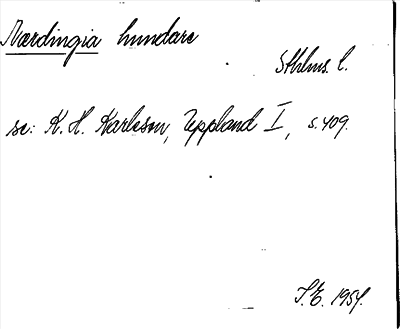 Nærdingia hundare
Sthlms. l.
se: K. H. Karlsson, Uppland I, s. 409.
S.E. 1954.